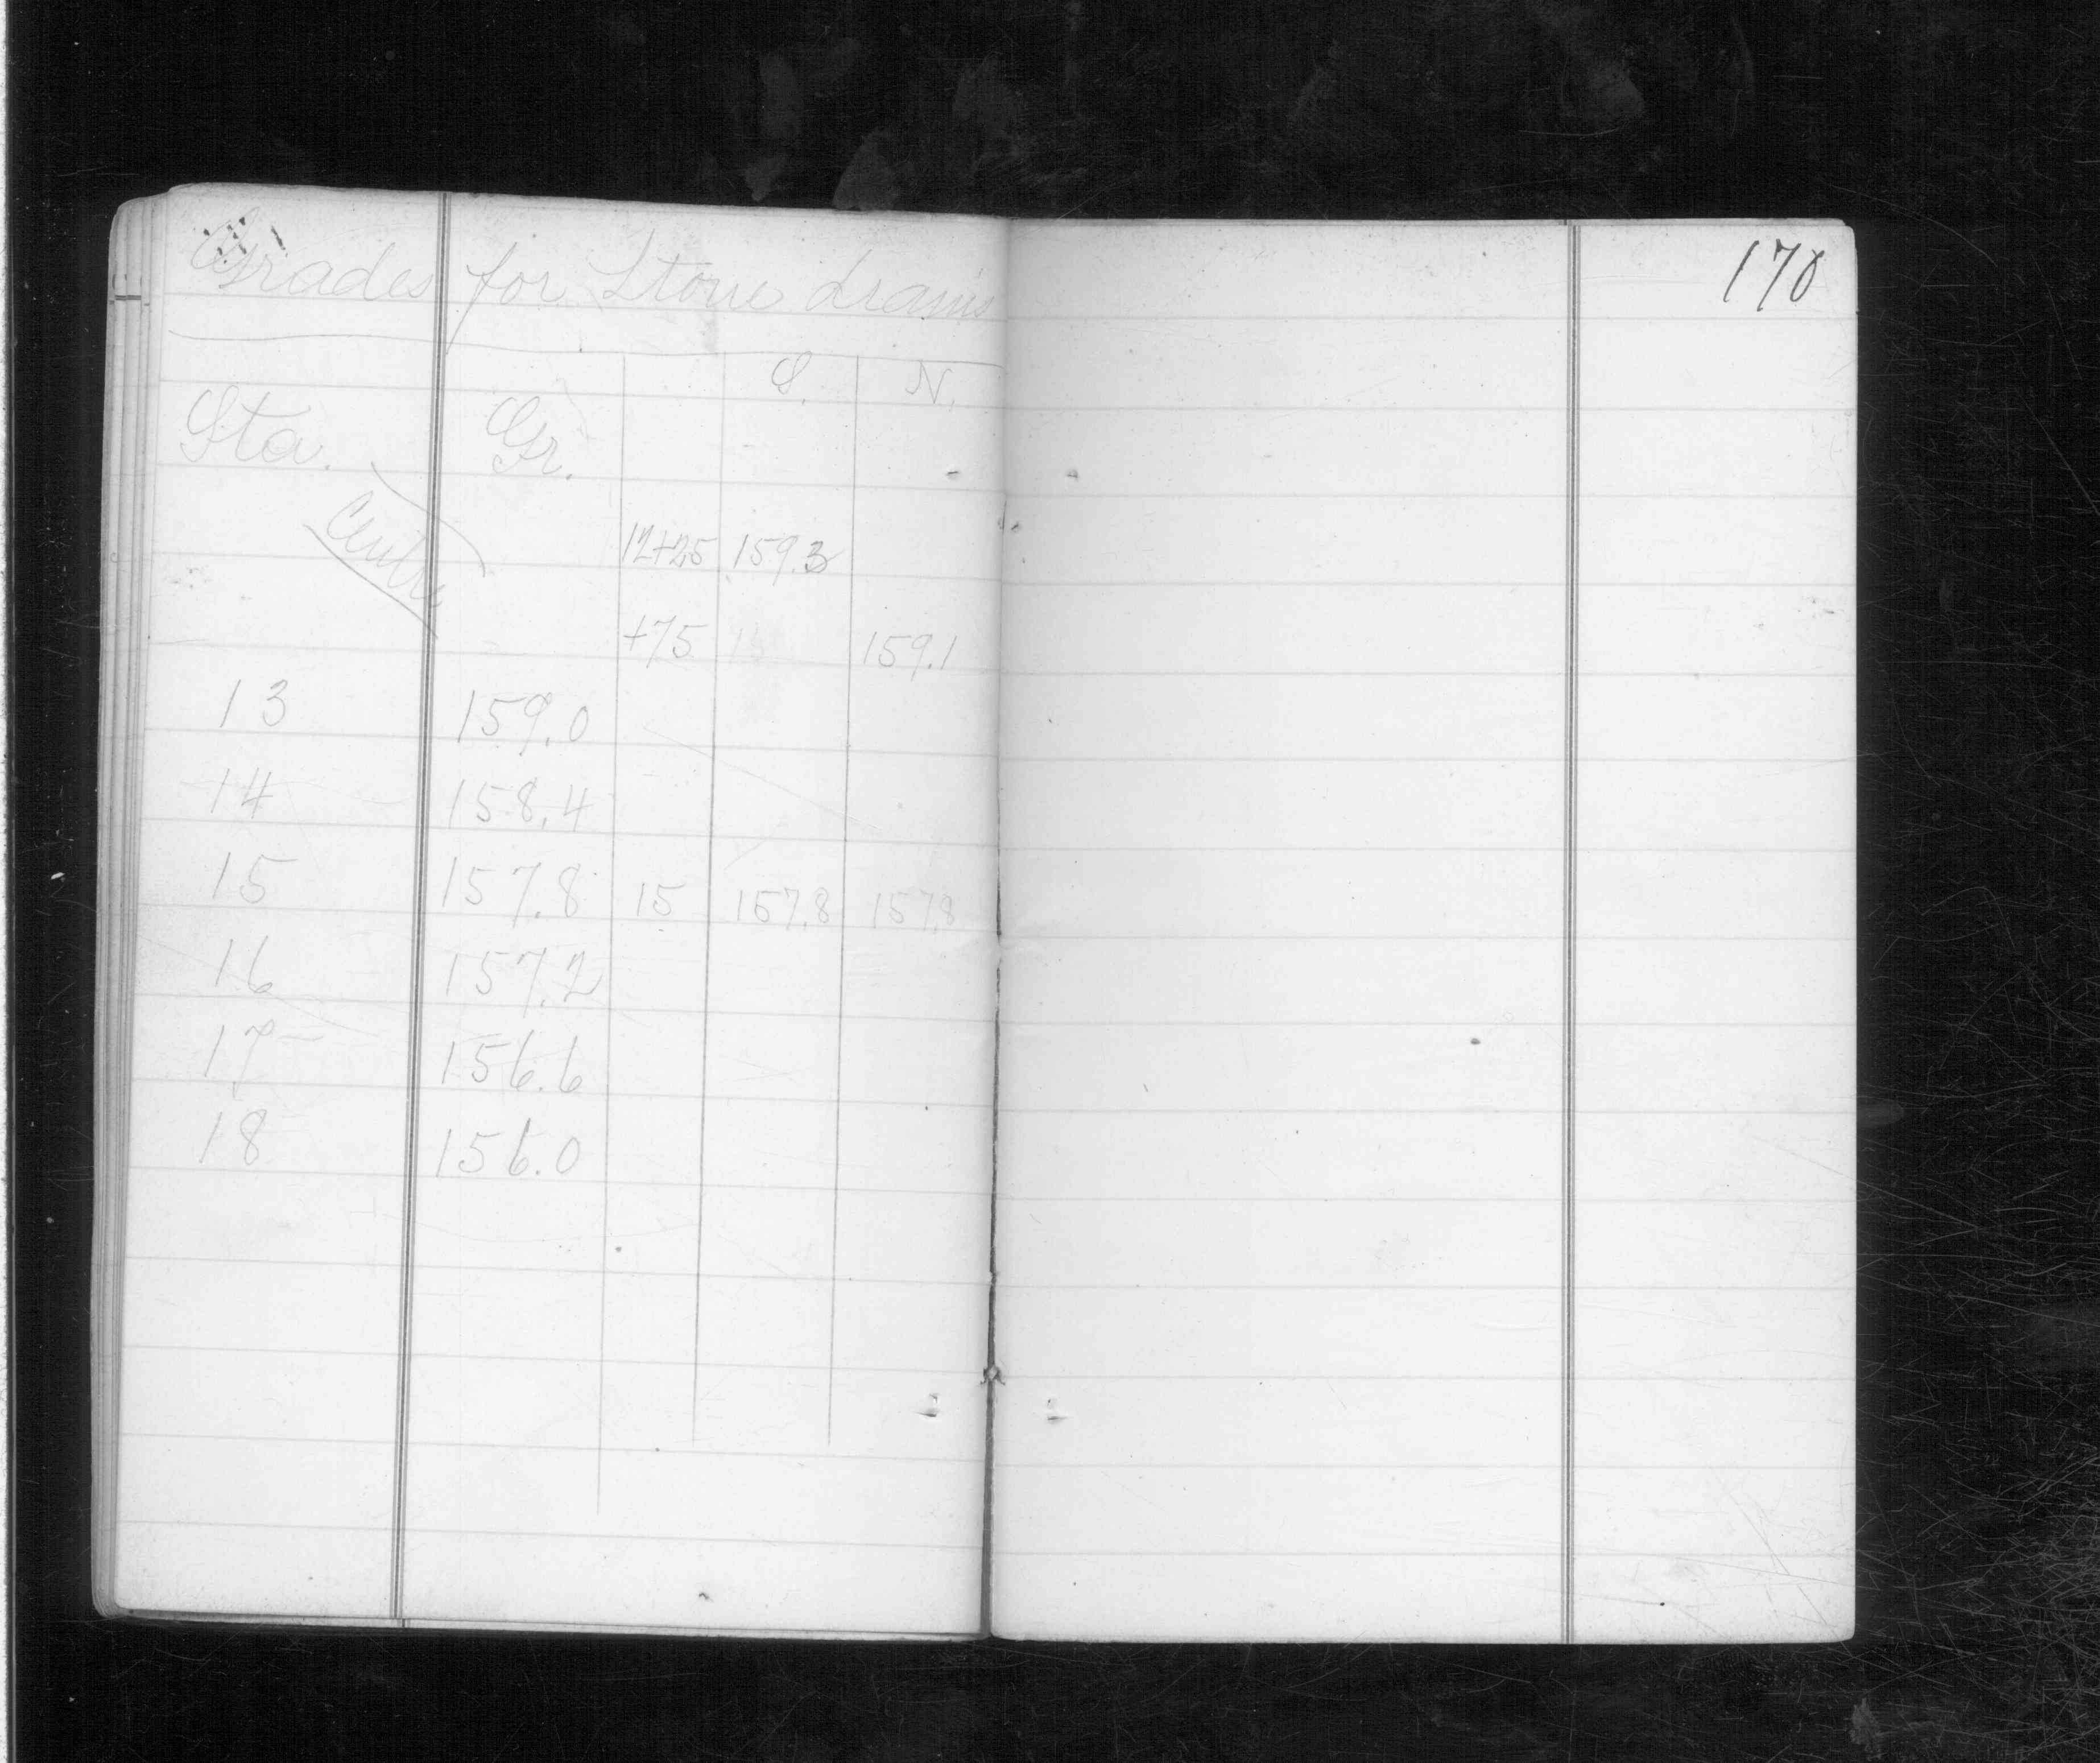 Grades for Stone Drains
170
S. N.
Sta. Gr.
Centre
12+25 159.3
+75 159.1
13 159.0
14 158.4
15 157.8 15 157.8 157.8
16 157.2
17 156.6
18 156.0